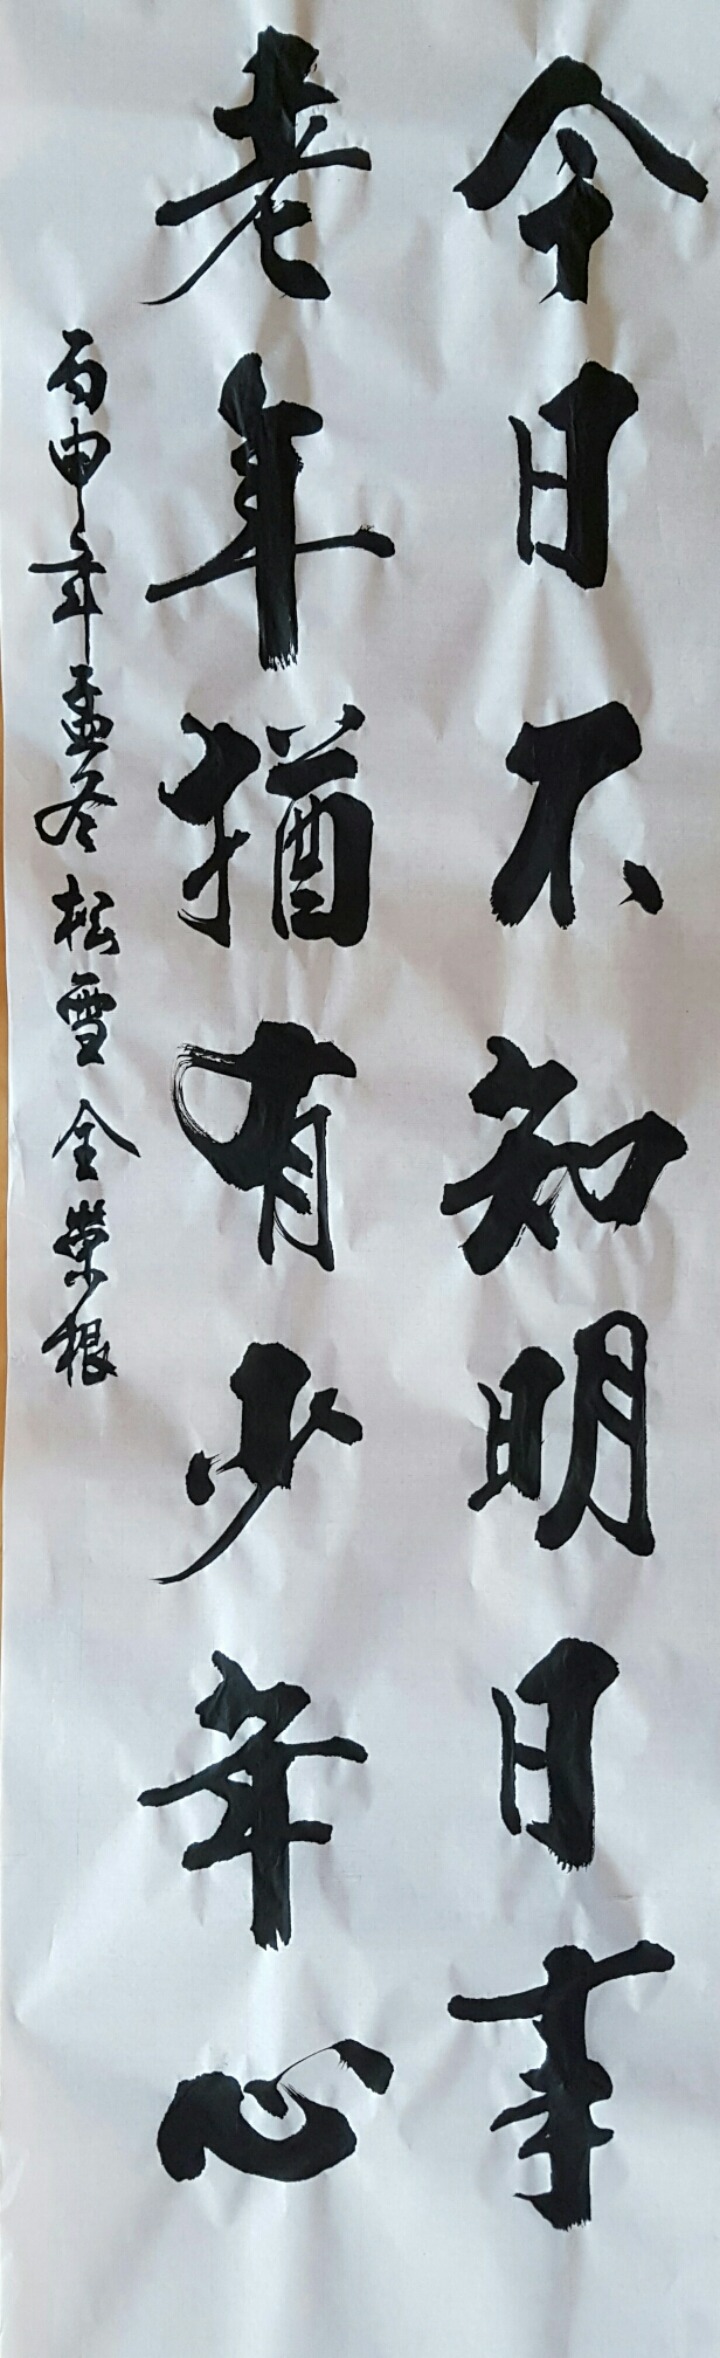 今日不知明日事
老年猶有少年心
丙申年孟冬松雪金榮根